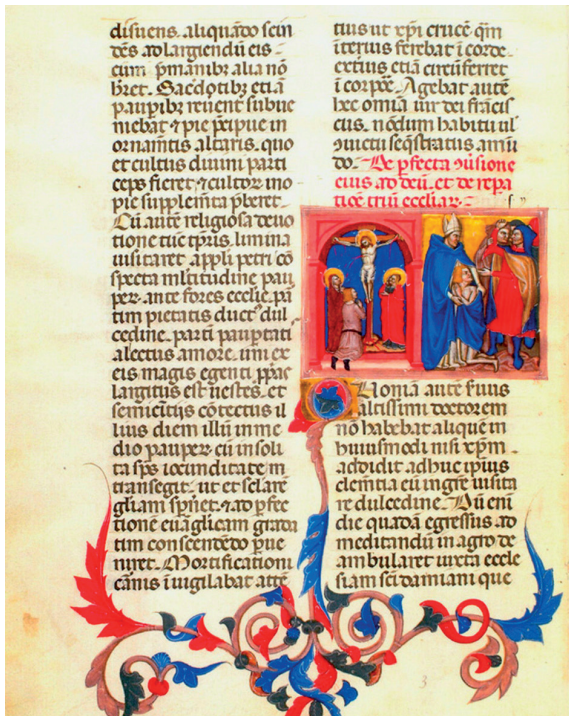 disuens. aliquãdo scin
dẽs ad largiendũ eis
cum p̃manibꝫ alia nõ
hr̃et. Sac̃dotibꝫ etiã
paupibꝫ reuent̃ subue
niebat ⁊ pie p̃cipue in
ornam̃tis altaris. quo
et cultus diuini parti
ceps fieret ⁊ cultoꝝ ino
pie supplem̃ta p̃beret.
Cũ autẽ religiosa deuo
tione tũc tp̃ris limina
uisitaret ap̃pli petri cõ
specta ml̃titudine pau
peꝝ ante fores ecclie. p̃a
tim pietatis duct᷒ dul
cedine. partĩ paup̃tati
alectus amore. uni ex
eis magis egenti p̃p̃as
largitus est uestes. et
semicĩtijs cõtectus il
lius diem illũ in me
dio paupeꝝ cũ insoli
ta sp̃s iocunditate
transegit. ut et scl̃are
gl̃iam sp̃net. ⁊ ad p̃fec
tionẽ euãglicam grada
tim conscendẽdo p̃ue
niret. Mortificationi
carnis ĩuigilabat attẽ
tius ut xp̃i crucẽ. q̃m
ĩterius ferebat ĩ corde.
exterius etiã circũferret
ĩ corpõe. Agebat autẽ
hec omĩa uir dei frãcis
cus. nõdum habitu ul̃
ꝯuictu seq̃stratus a mũ
do. De p̃fecta ꝯũsione
eius ad deũ. et de repa
tiõe triũ eccliaꝝ.
Quoniã autẽ s̃uus
altissimi doctorem
nõ habebat aliquẽ in
huiusmodi nisi xp̃m.
addidit adhuc ipius
clem̃tia eũ in gr̃e uisita
re dulcedine. Dũ eni
die quadã egressus ad
meditandũ in agro de
ambularet iuxta eccle
siam sc̃i damiani que
3